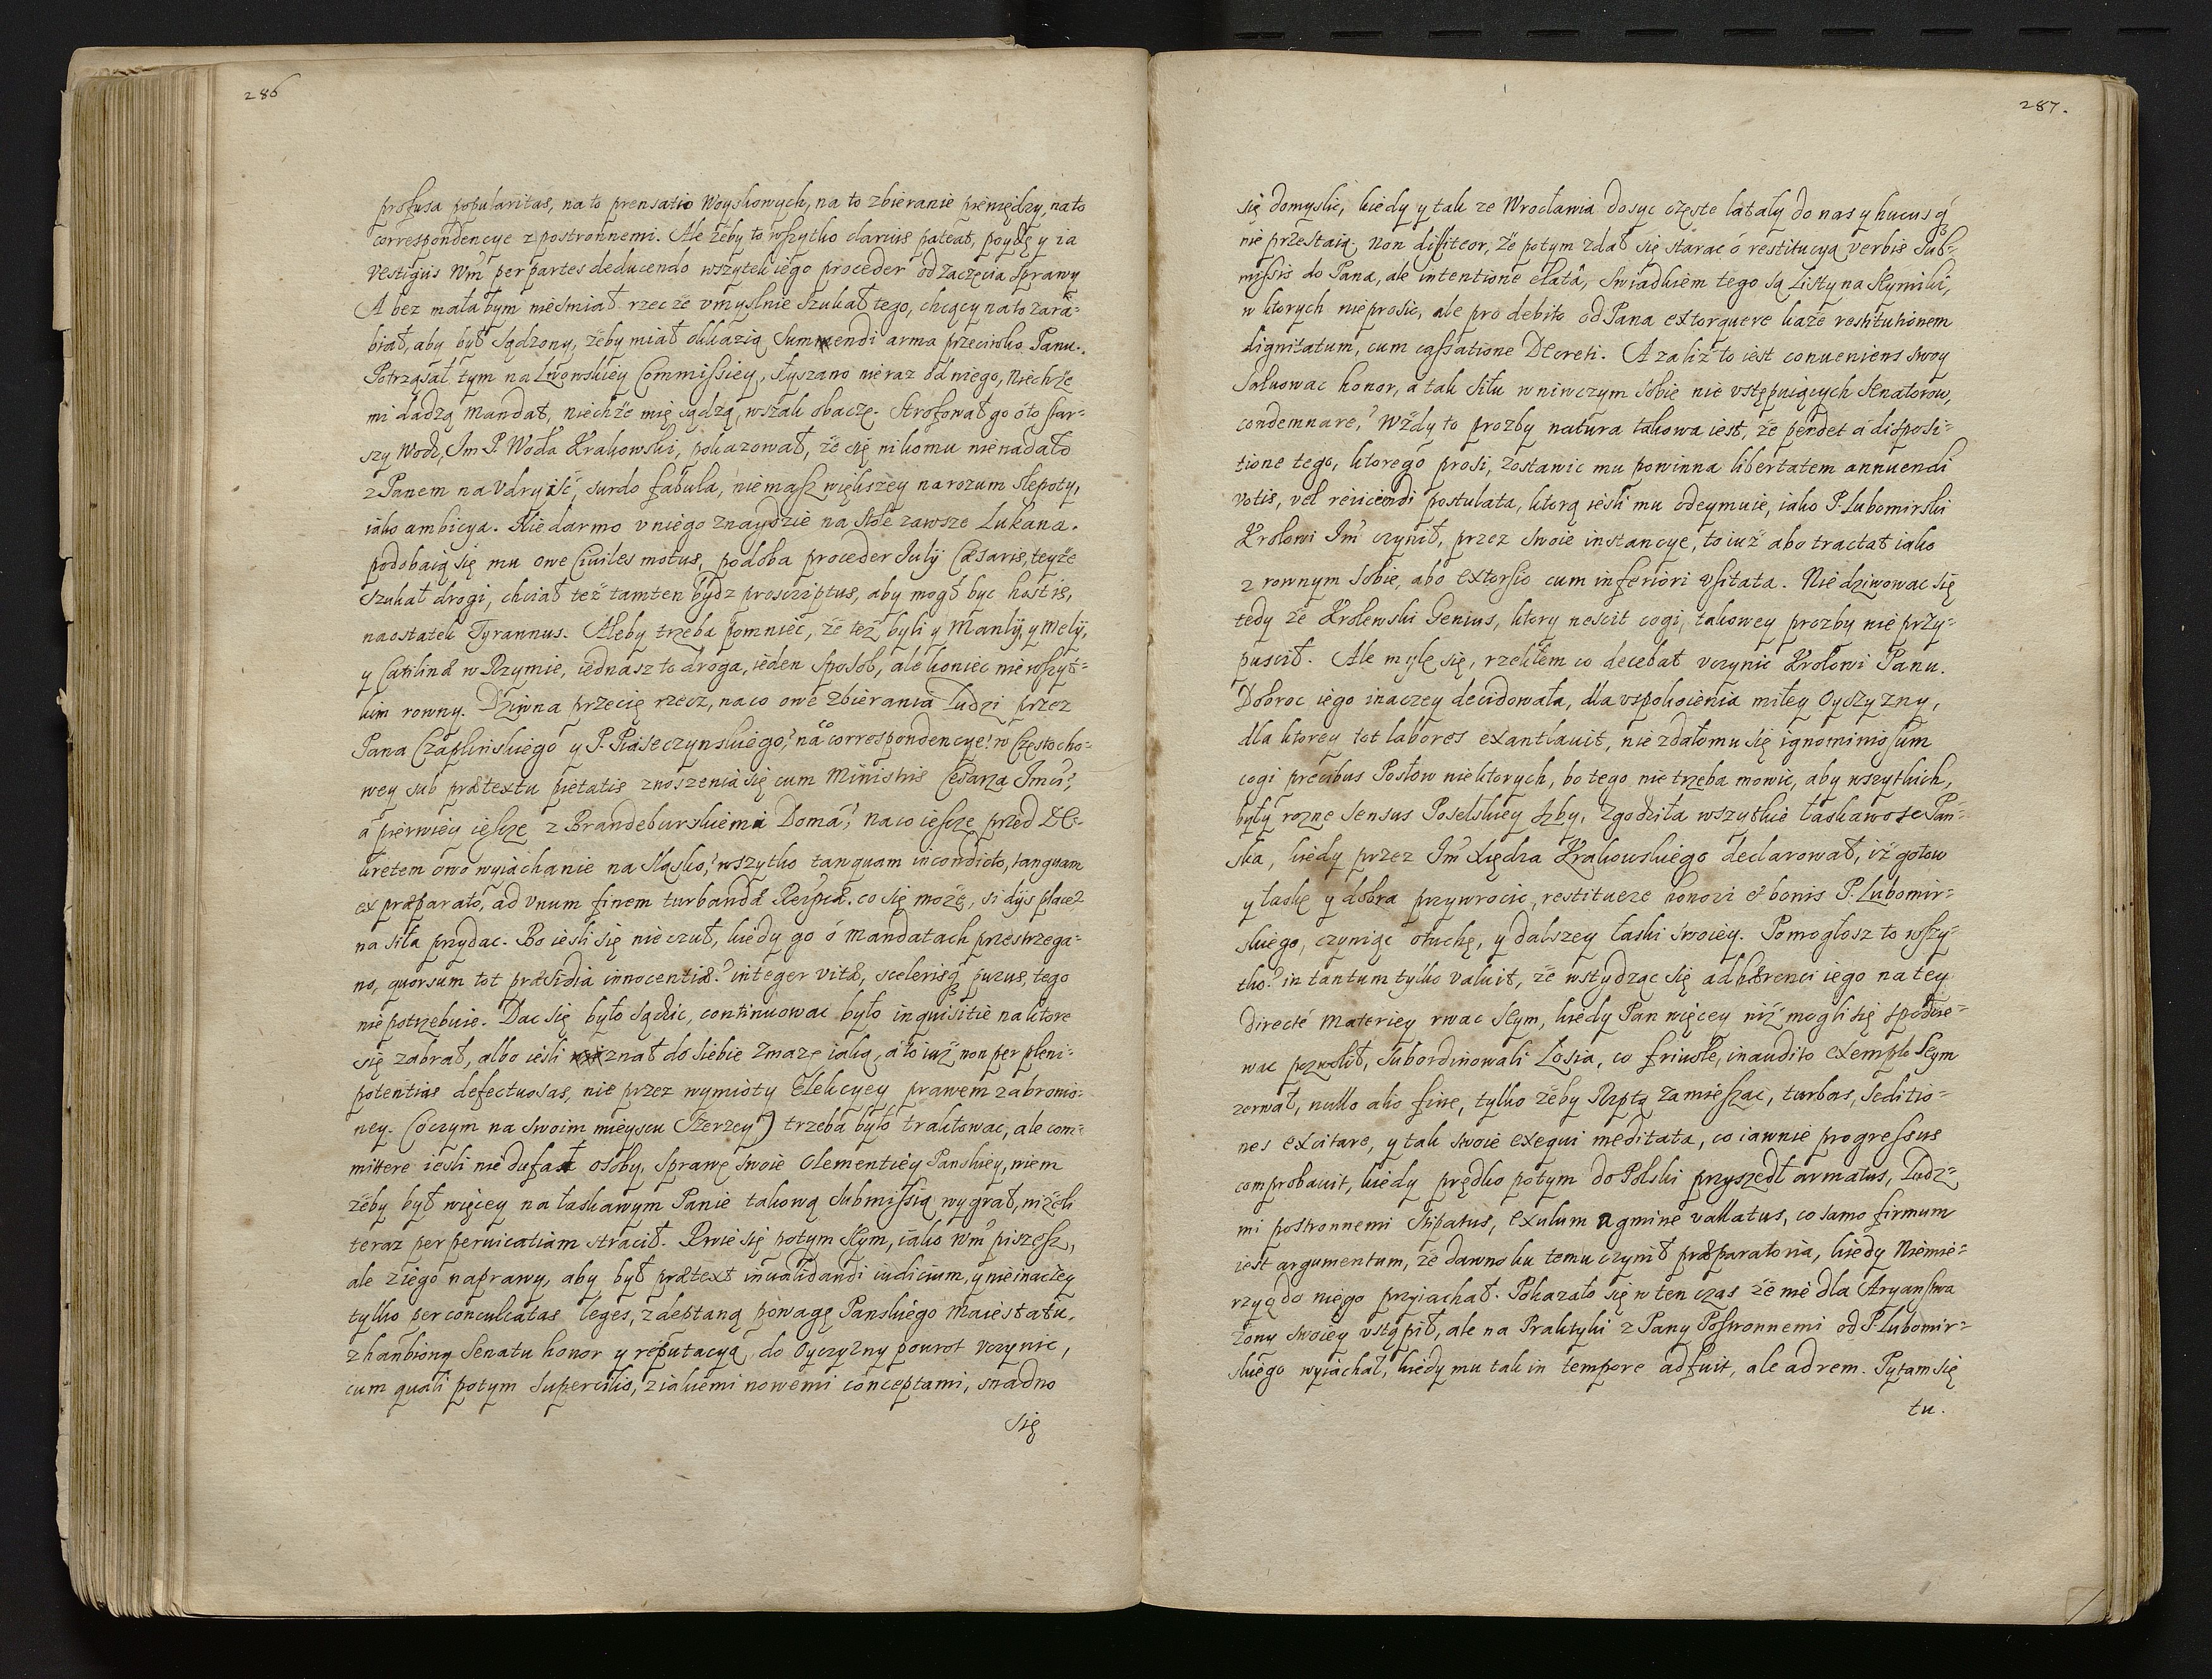 286
profusa popularitas, na to prensatio Woyskowych, na to zbieranie pieniędzy, na to
correspondencye z postronnemi. Ale żeby to wszytko clarius pateat, poydę y ia
vestigiis Wm̃ per partes deducendo wszytek iego proceder od zaczęcia sprawy
A bez mała bym nieśmiał rzec że vmyslnie szukał tego, chcący na to zara-
biał, aby był sądzony, żeby miał okkazią sumendi arma przeciwko Panu.
Potrząsał tym na Lwowskiey Commissiey, słyszano nieraz od niego, niechże
mi dadzą mandat, niechże mię sądzą, wszak obaczę. Strofował go o to star-
szy Wodz, Im P. Woda Krakowski, pokazował, że się nikomu nienadało
z Panem na vdry iść, surdo fabula, niemasz większey na rozum slepoty,
iako ambicya. Nie darmo v niego znaydzie na stole zawsze Lukana.
podobaią się mu owe Ciuiles motus, podoba proceder Iulij Cæsaris, teyże
szukał drogi, chciał też tamten bydz proscriptus, aby mogł byc hostis,
na ostatek Tyrannus. Aleby trzeba pomnieć, że też byli y Manlij, y Melij,
y Catilinæ w Rzymie, iednasz to droga, ieden sposob, ale koniec nie wszyt-
kim rowny. Dziwna przecię rzecz, na co owe zbierania Ludzi przez
Pana Czaplinskiego y P. Piaseczynskiego? na co correspondencye? w Częstocho-
wey sub prætextu pietatis znoszenia się cum Ministris Cesarza Imci?
a pierwiey iescze z Brandeburskiemi Doma? na co iescze przed De-
kretem owo wyiachanie na Slasko? wszytko tanquam in condicto, tanquam
ex præparato, ad vnum finem turbandæ Reipcæ. co się może, si dijs placet
na siła przydac. Bo iesli się nie czuł, kiedy go o mandatach przestrzega-
no, quorsum tot præsidia innocentiæ? integer vitæ, scelerisq purus, tego
nie potrzebuie. Dac się było sądzic, continuowac było inquisitie na ktore
się zabrał, albo iesli znał do siebie zmazę iaką, a to iuż non per pleni-
potentias defectuosas, nie przez wymioty Elekcyey prawem zabronio-
ney. (o czym na swoim mieyscu szerzey) trzeba było traktowac, ale com-
mittere iesli nie dufał osoby, sprawę swoie Clementiey Panskiey, wiem
żeby był więcey na łaskawym Panie takową submissią wygrał, niżeli
teraz per peruicatiam stracił. Rwie się potym Seym, iako Wm̃ piszesz,
ale z iego naprawy, aby był prætext inualidandi iudicium, y nieinaczey
tylko per conculcatas leges, zdeptaną powagę Panskiego maiestatu,
zhanbiony Senatu honor y reputacyą do Oyczyzny pourot vczynic,
cum quali potym supercilio, z iakiemi nowemi conceptami, snadno
się
287.
się domyslic, kiedy y tak ze Wrocławia dosyc częste latały do nas y hucusq
nie przestaią. non diffiteor, że potym zdał się starac o restitucyą verbis sub-
missis do Pana, ale intentione elata, swiadkiem tego są Listy na Seymiki,
w ktorych nie prosic, ale pro debito od Pana extorquere każe restitutionem
dignitatum, cum cassatione Decreti. A zaliż to iest conueniens swoy
saluowac honor, a tak siłu w niwczym sobie nie vstępuiących Senatorow,
condemnare? Wżdy to prozby natura takowa iest, że pendet a disposi-
tione tego, ktorego prosi, zostawic mu powinna libertatem annuendi
votis, vel reiiciendi postulata, ktorą iesli mu odeymuie, iako P. Lubomirski
Krolowi Im̃ czynił, przez swoie instancye, to iuż abo tractat iako
z rownym sobie, abo extorsio cum inferiori vsitata. Nie dziwowac się
tedy że Krolewski Genius, ktory nescit cogi, takowey prozby nie przy-
puscił. Ale mylę się, rzekłem co decebat vczynic Krolowi Panu.
Dobroc iego inaczey decidowała, dla vspokoienia miłey Oyczyzny,
dla ktorey tot labores exantlauit, nie zdałomu się ignominiosum
cogi precibus Posłow niektorych, bo tego nie trzeba mowic, aby wszytkich,
były rozne sensus Poselskiey Izby, zgodziła wszytkie łaskawosc Pan-
ska, kiedy przez Im̃ Xiędza Krakowskiego declarował, iż gotow
y łaskę y dobra przywrocic, restituere honori et bonis P. Lubomir-
skiego, czyniąc otuchę, y dalszey łaski swoiey. Pomogłosz to wszy-
tko? in tantum tylko valuit, że wstydząc się adhærenci iego na tey
directé materiey rwac Seym, kiedy Pan więcey niż mogli się spodzie-
wac pozwolił, subordinowali Losia, co friuole, inaudito exemplo Seym
zerwał, nullo alio fine, tylko żeby Rzptą zamieszac, turbas, seditio-
nes excitare, y tak swoie exequi meditata, co iawnie progressus
comprobauit, kiedy prędko potym do Polski przyszedł armatus, Ludz-
mi postronnemi stipatus, exulum agmine vallatus, co samo firmum
iest argumentum, że dawno ku temu czynił præparatoria, kiedy Niemie-
rzyc do niego przyiachał. Pokazało się w ten czas że nie dla Aryanstwa
żony swoiey vstąpił, ale na Praktyki z Pany Postronnemi od P. Lubomir-
skiego wyiachał, kiedy mu tak in tempore adfuit, ale ad rem. Pytam się
tu.